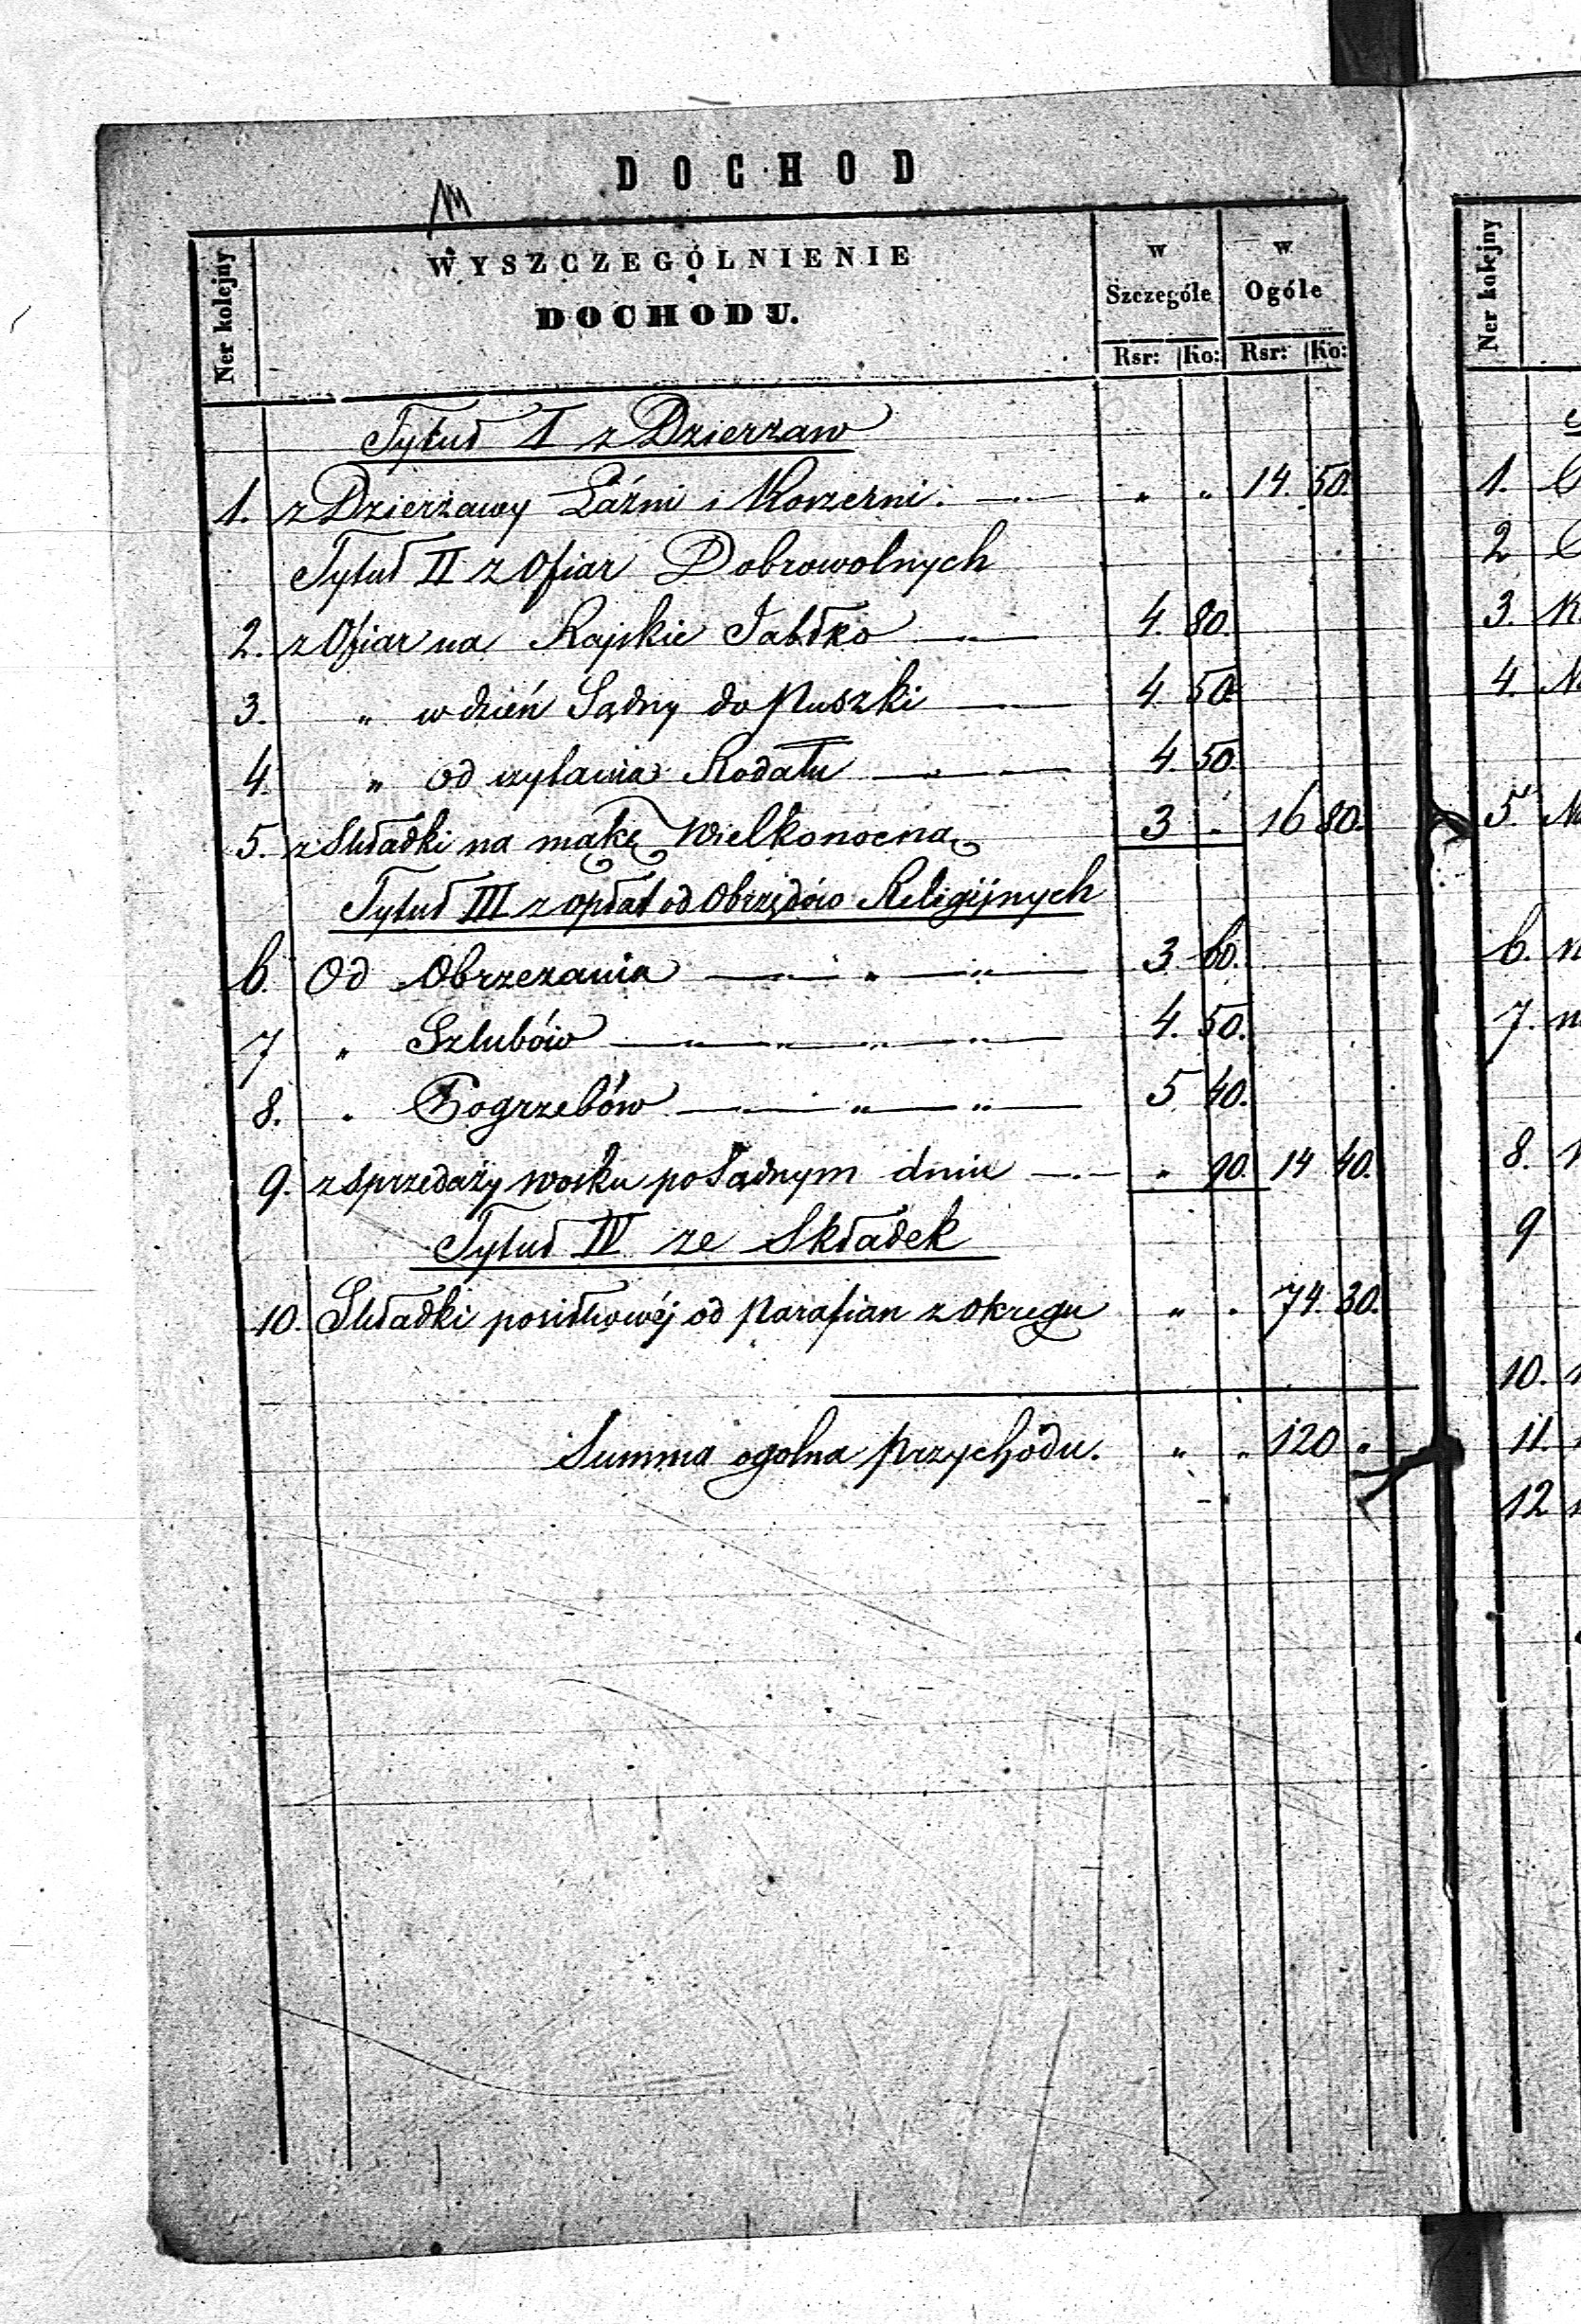 DOCHOD
Ner kolejny
WYSZCZEGÓLNIENIE
DOCHODU.
w Szczególe
w Ogóle
Rsr: Ko: Rsr: Ko:
Tytuł I z Dzierzaw
1. z Dzierżawy Łaźni i Koszerni. " " 14. 50.
Tytuł II z Ofiar Dobrowolnych
2. z Ofiar na Rajskie Jabłko 4. 80.
3. " w dzień Sądny do Puszki 4. 50.
4. " od czytania Rodału 4. 50.
5. z Składki na mąkę Wielkonocną 3 " 16 80.
Tytuł III z opłat od Obrzędów Religijnych
6. Od Obrzezania 3. 60.
7 " Szlubów 4. 50.
8. " Pogrzebów 5 40.
9. z sprzedaży wosku po Sądnym dniu " 90. 14 40.
Tytuł IV ze Składek
10. Składki posiłkowéj od Parafian z okręgu " " 74. 30.
Summa ogolna przychodu. " " 120 "
Ner kolejny
1.
2
3.
4.
5.
6.
7.
8.
9
10.
11.
12